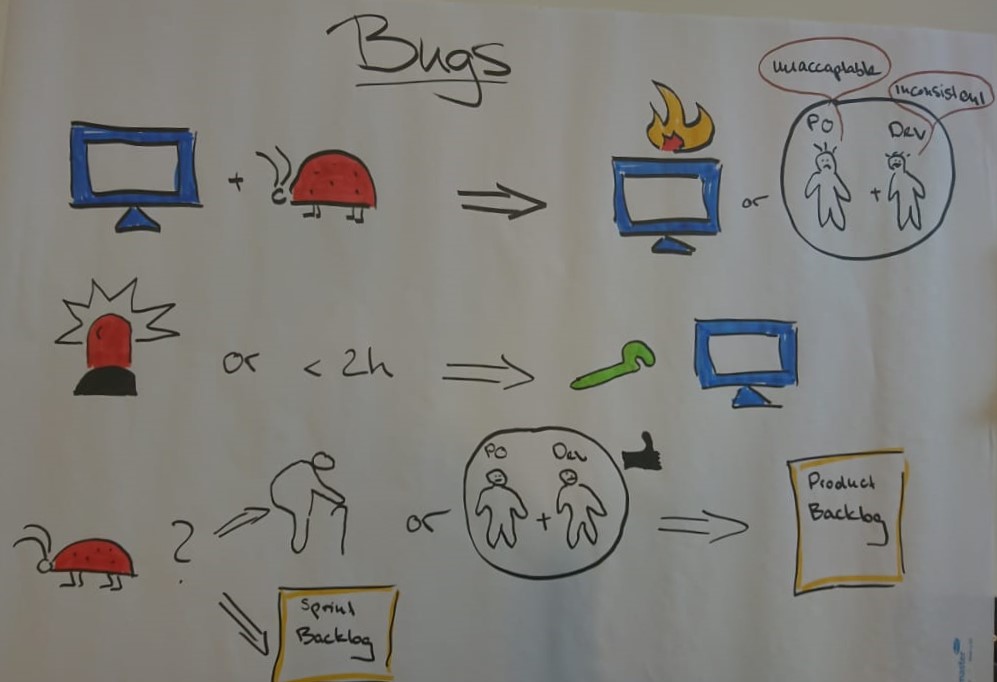 Bugs
unaccaptable
inconsistent
PO
Dev
+
or
+
or < 2h
PO
Dev
or
+
Product
Backlog
?
Sprint
Backlog